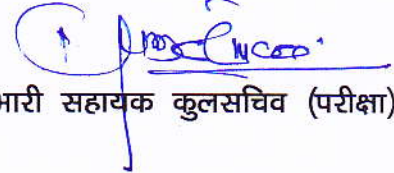 भारी सहायक कुलसचिव (परीक्षा)